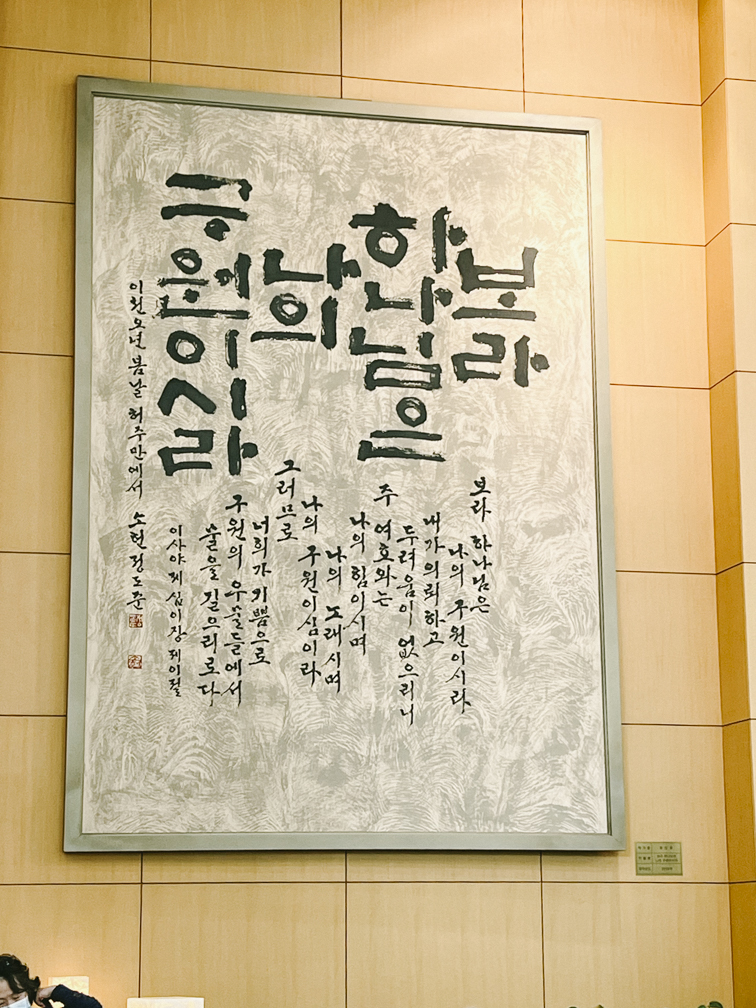 보라
하나님은
나의
구원이시라
보라 하나님은
나의 구원이시라
내가 의뢰하고
두려움이 없으리니
주 여호와는
나의 힘이시며
나의 노래시며
나의 구원이심이라
그러므로
너희가 기쁨으로
구원의 우물들에서
물을 길으리로다
이사야 제 십이장 제이절
이천오년 봄날 허주만에서 소헌 정도준